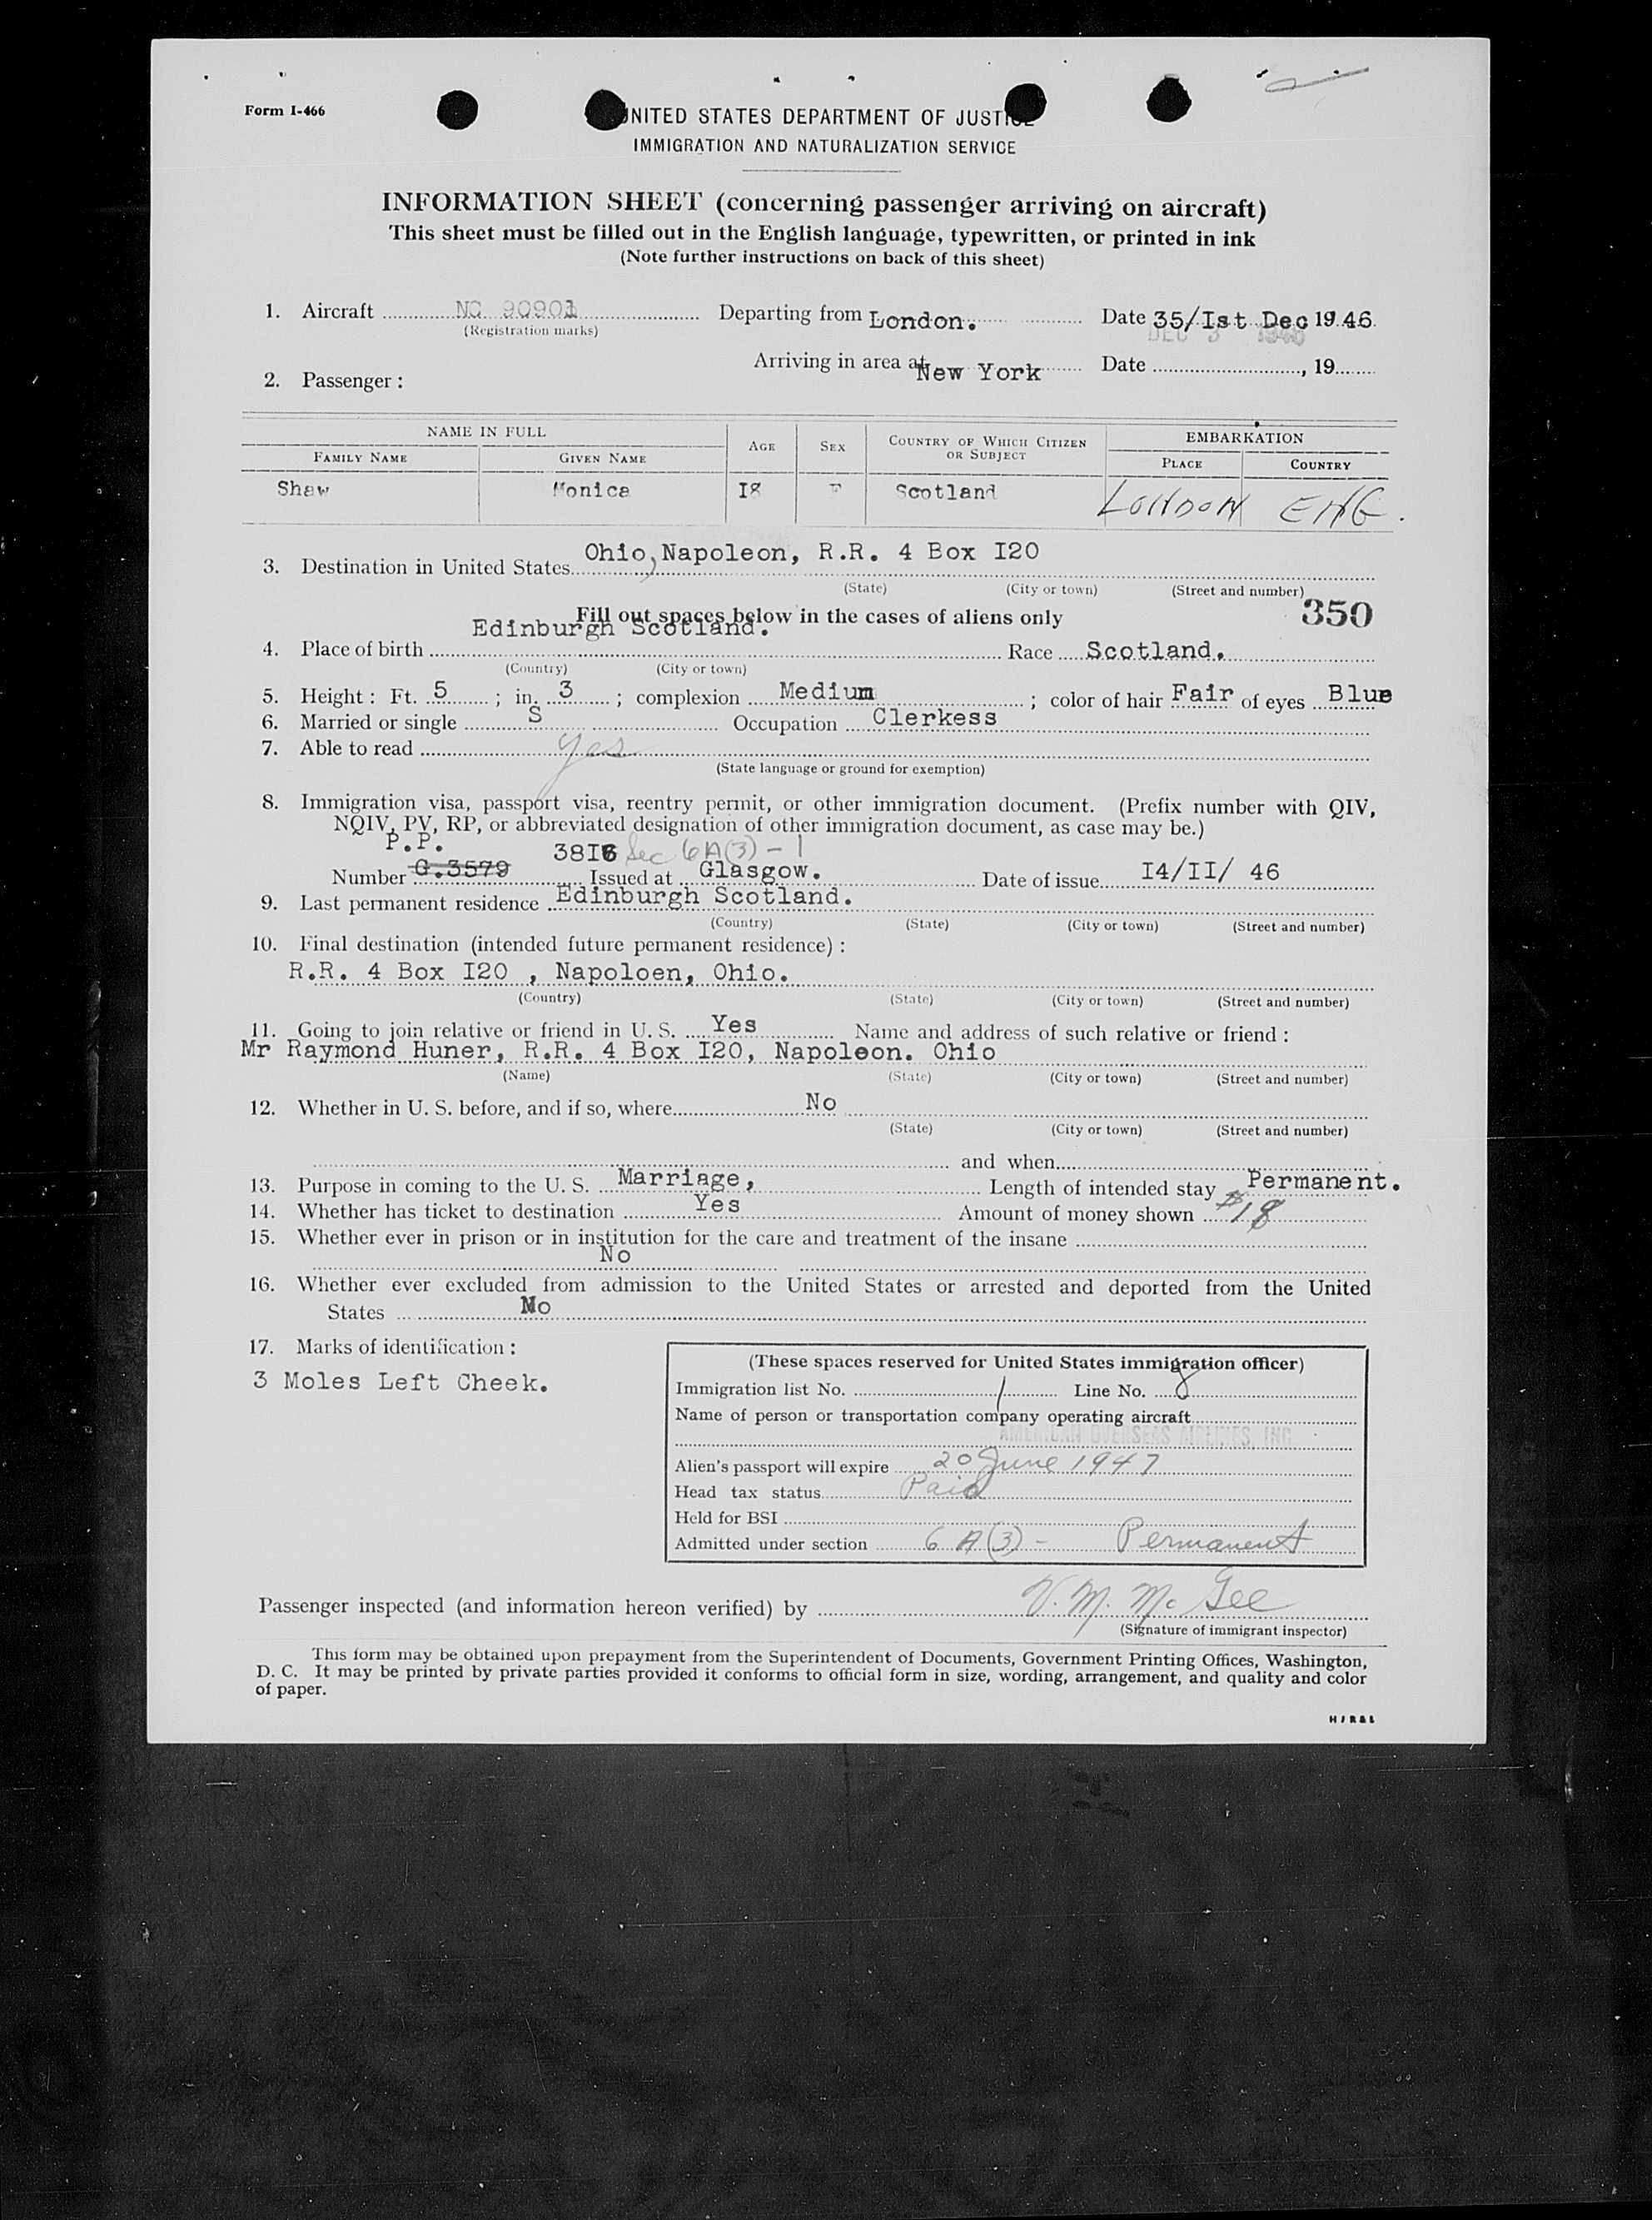 Form I-466
UNITED STATES DEPARTMENT OF JUSTICE
IMMIGRATION AND NATURALIZATION SERVICE
INFORMATION SHEET (concerning passenger arriving on aircraft)
This sheet must be filled out in the English language, typewritten, or printed in ink
(Note further instructions on back of this sheet)
1. Aircraft NC 90901 Departing from London. Date 35/Ist Dec 1946
(Registration marks) DEC 3 1946
Arriving in area at New York Date , 19
2. Passenger :
NAME IN FULL AGE SEX COUNTRY OF WHICH CITIZEN OR SUBJECT EMBARKATION
FAMILY NAME GIVEN NAME PLACE COUNTRY
Shaw Monica I8 F Scotland LONDON ENG.
3. Destination in United States Ohio, Napoleon, R.R. 4 Box I20
(State) (City or town) (Street and number)
Fill out spaces below in the cases of aliens only 350
4. Place of birth Edinburgh Scotland. Race Scotland.
(Country) (City or town)
5. Height : Ft. 5 ; in. 3 ; complexion Medium ; color of hair Fair of eyes Blue
6. Married or single S Occupation Clerkess
7. Able to read Yes
(State language or ground for exemption)
8. Immigration visa, passport visa, reentry permit, or other immigration document. (Prefix number with QIV,
NQIV, PV, RP, or abbreviated designation of other immigration document, as case may be.)
P.P. 38I6 Sec 6A(3) - 1
Number G.3579 Issued at Glasgow. Date of issue I4/II/ 46
9. Last permanent residence Edinburgh Scotland.
(Country) (State) (City or town) (Street and number)
10. Final destination (intended future permanent residence) :
R.R. 4 Box I20 , Napoloen, Ohio.
(Country) (State) (City or town) (Street and number)
11. Going to join relative or friend in U. S. Yes Name and address of such relative or friend :
Mr Raymond Huner, R.R. 4 Box I20, Napoleon. Ohio
(Name) (State) (City or town) (Street and number)
12. Whether in U. S. before, and if so, where No
(State) (City or town) (Street and number)
and when
13. Purpose in coming to the U. S. Marriage, Length of intended stay Permanent.
14. Whether has ticket to destination Yes Amount of money shown $18
15. Whether ever in prison or in institution for the care and treatment of the insane
No
16. Whether ever excluded from admission to the United States or arrested and deported from the United
States No
17. Marks of identification :
3 Moles Left Cheek.
(These spaces reserved for United States immigration officer)
Immigration list No. 1 Line No. 8
Name of person or transportation company operating aircraft
AMERICAN OVERSEAS AIRLINES, INC
Alien's passport will expire 20 June 1947
Head tax status Paid
Held for BSI
Admitted under section 6 A(3) - Permanent
Passenger inspected (and information hereon verified) by V. M. McGee
(Signature of immigrant inspector)
This form may be obtained upon prepayment from the Superintendent of Documents, Government Printing Offices, Washington,
D. C. It may be printed by private parties provided it conforms to official form in size, wording, arrangement, and quality and color
of paper.
H / R & L